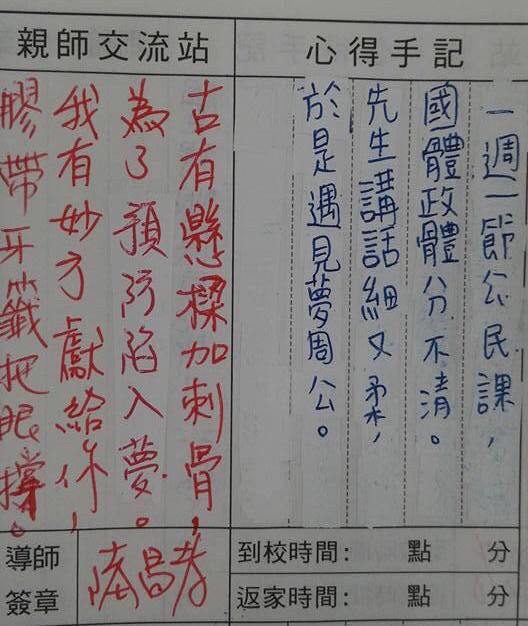 心得手記
一週一節公民課，
國體政體分不清。
先生講話細又柔，
於是遇見夢周公。
親師交流站
古有懸樑加刺骨，
為了預防陷入夢。
我有妙方獻給你，
膠帶牙籤把眼撐。
到校時間： 點 分
返家時間： 點 分
導師
簽章